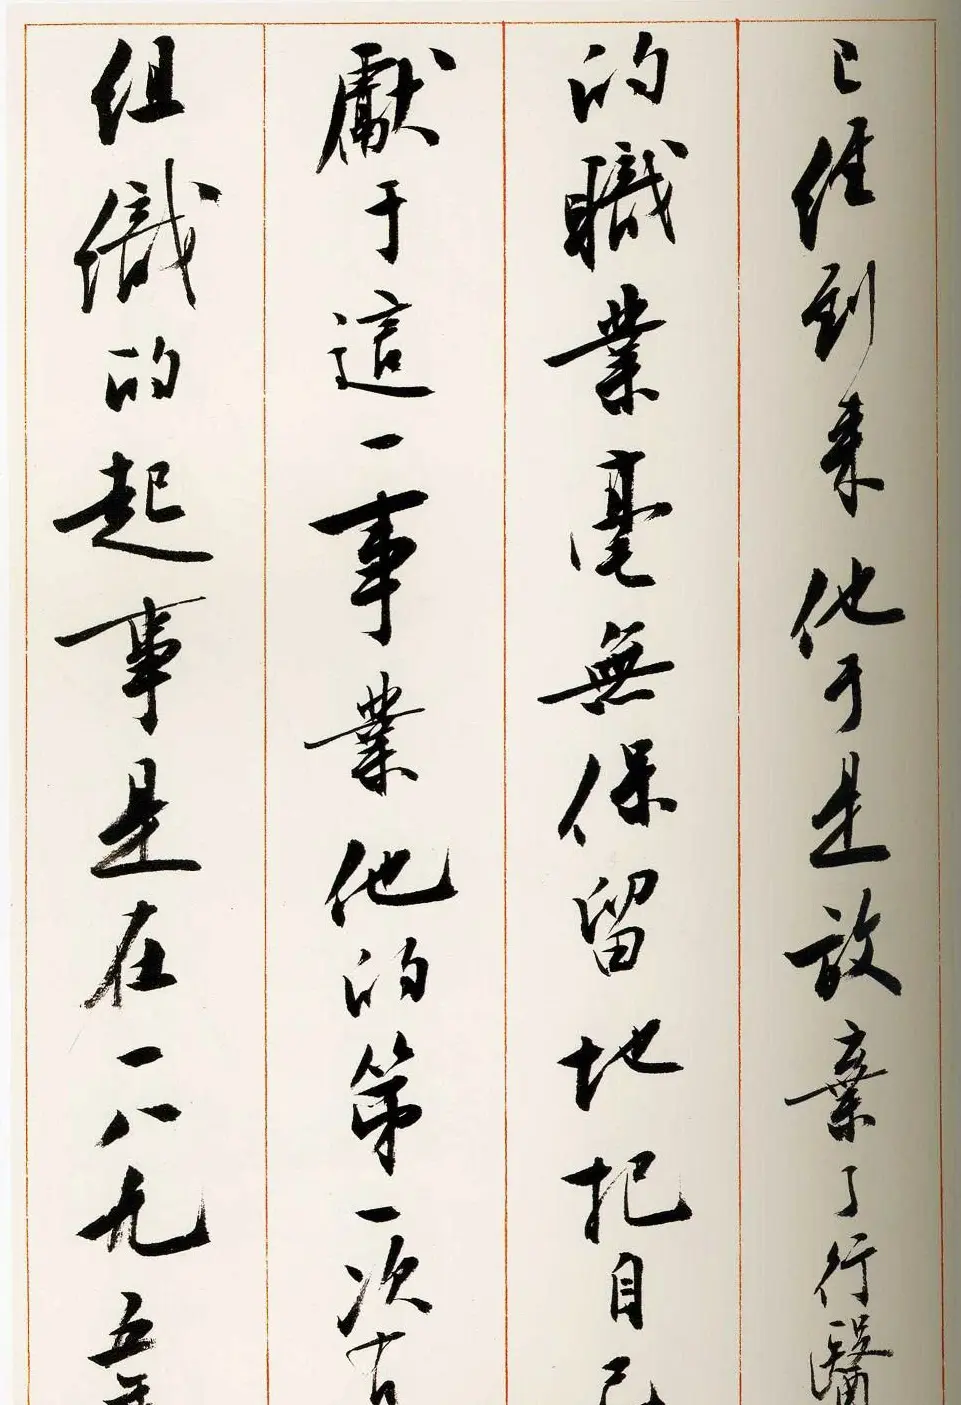 已經到來他于是放棄了行醫
的職業毫無保留地把自己
獻于這一事業他的第一次有
組織的起事是在一八九五年